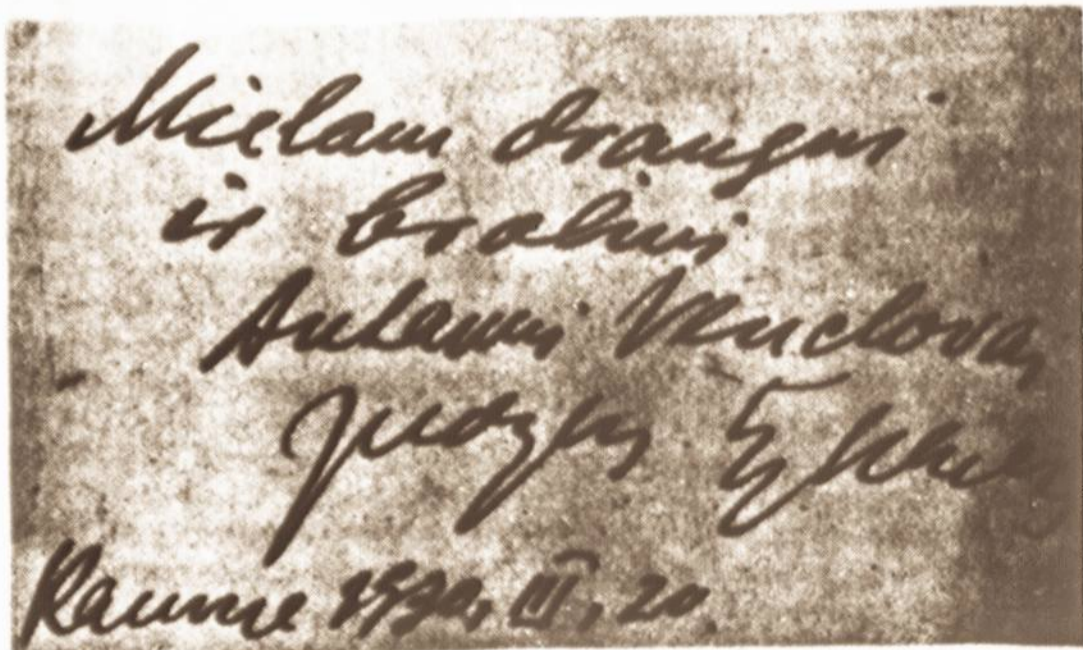 Mielam draugui
ir broliui
Antanui Venclovai
Juozas
Kaune 1970, III, 20